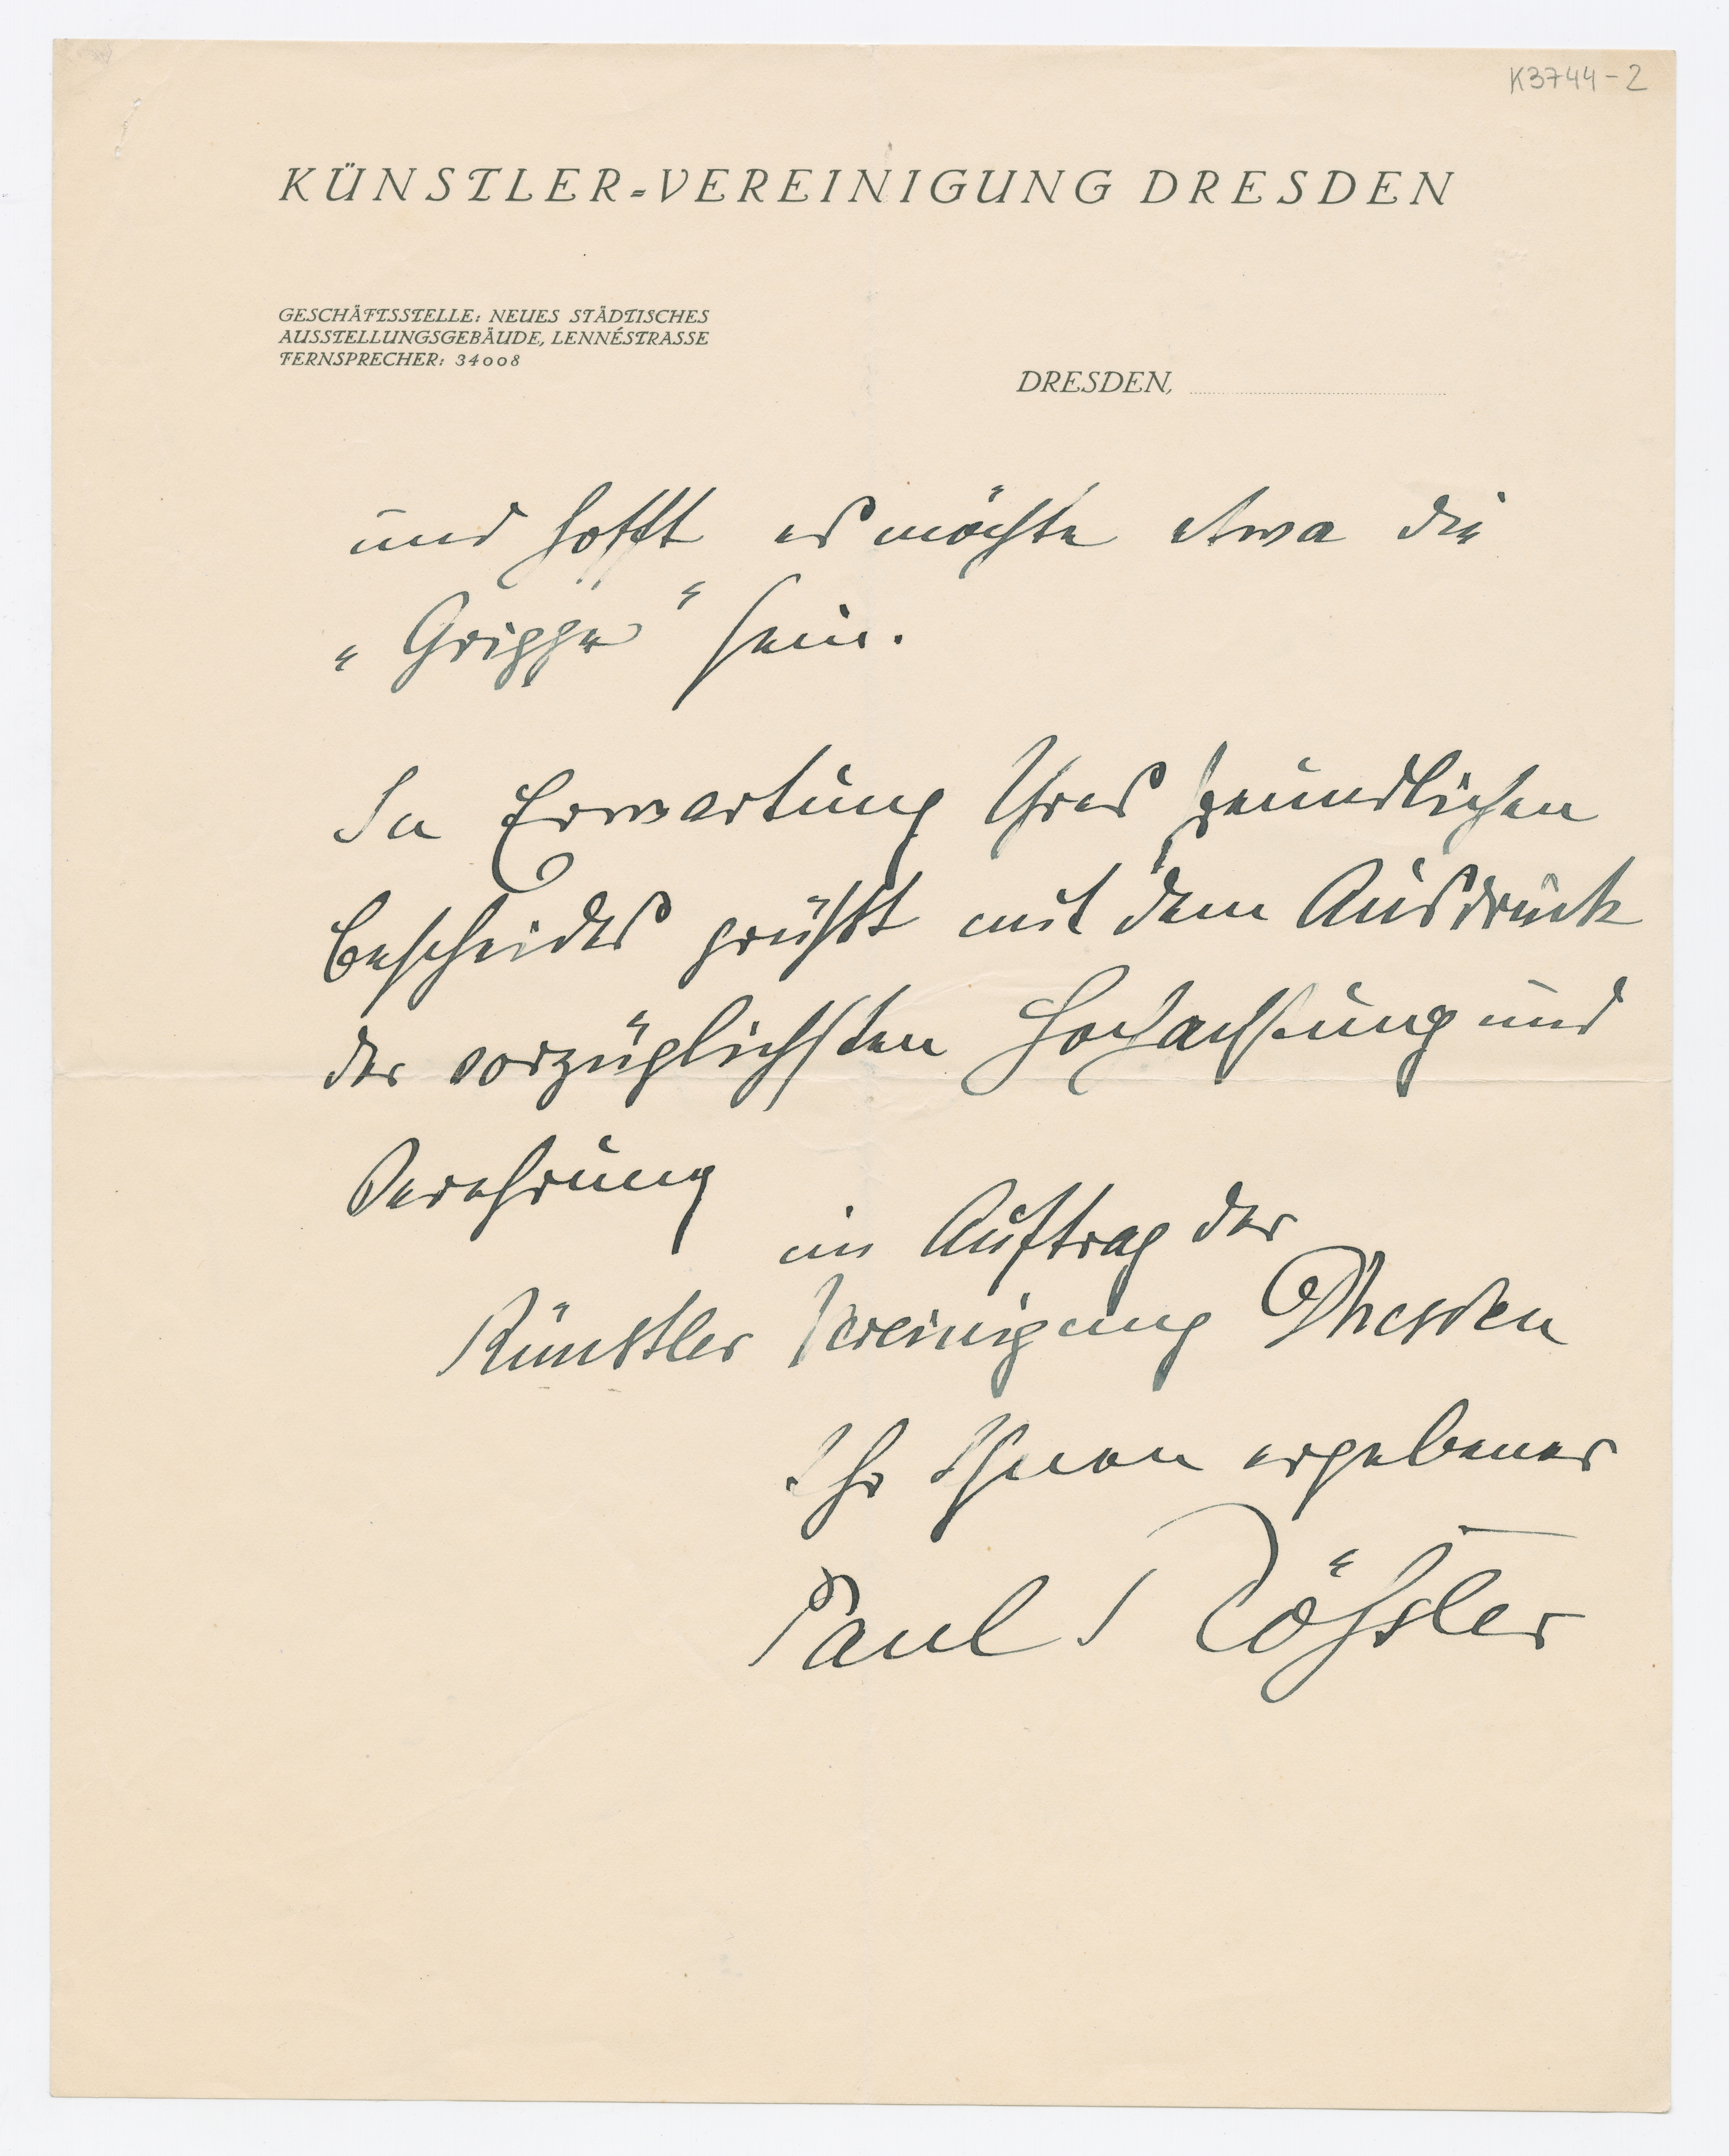 K3744-2
KÜNSTLER=VEREINIGUNG DRESDEN
GESCHÄFTSSTELLE: NEUES STÄDTISCHES
AUSSTELLUNGSGEBÄUDE, LENNÉSTRASSE
FERNSPRECHER: 34008
DRESDEN,
und hofft es möchte etwa die
„Grippe“ sein.
In Erwartung Ihres freundlichen
Bescheides grüßt mit dem Ausdruck
der vorzüglichsten Hochachtung und
Verehrung
im Auftrag der
Künstler Vereinigung Dresden
Ihr Ihnen ergebener
Paul Rößler